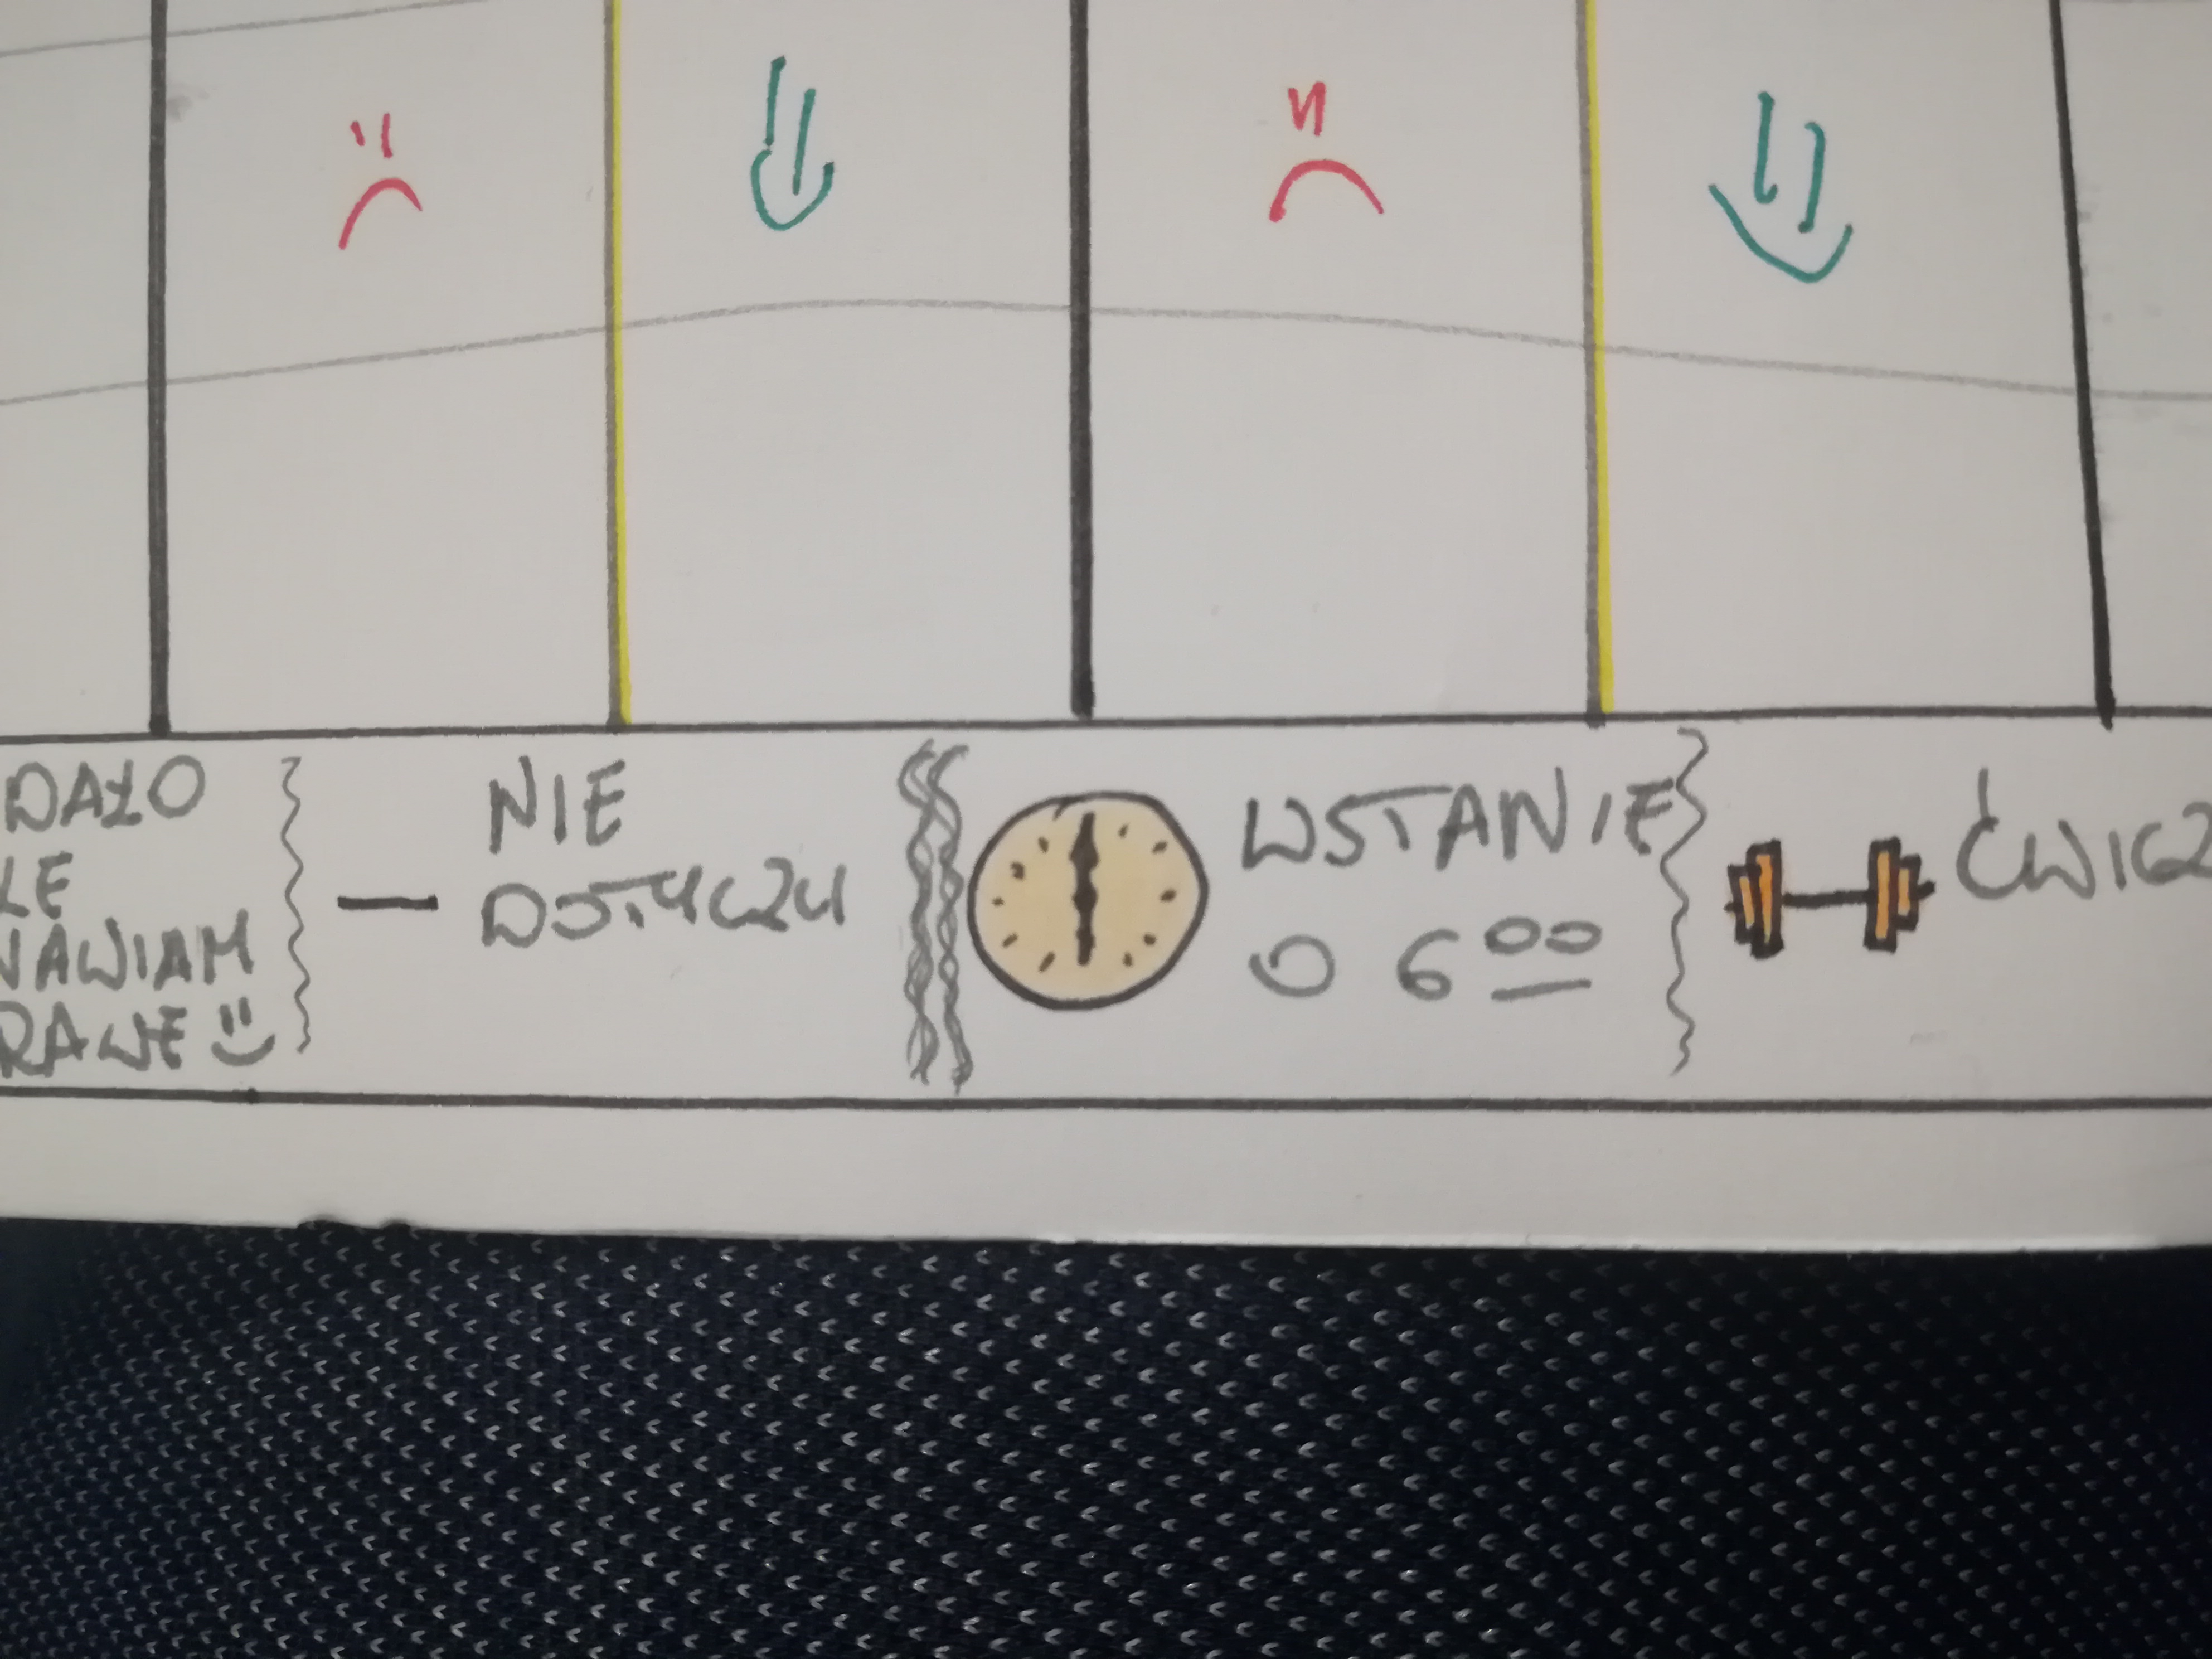 DAŁO
LE
NAWIAM
RAWE
— NIE
DOTYCZY
WSTANIE
O 6 00
ĆWICZ